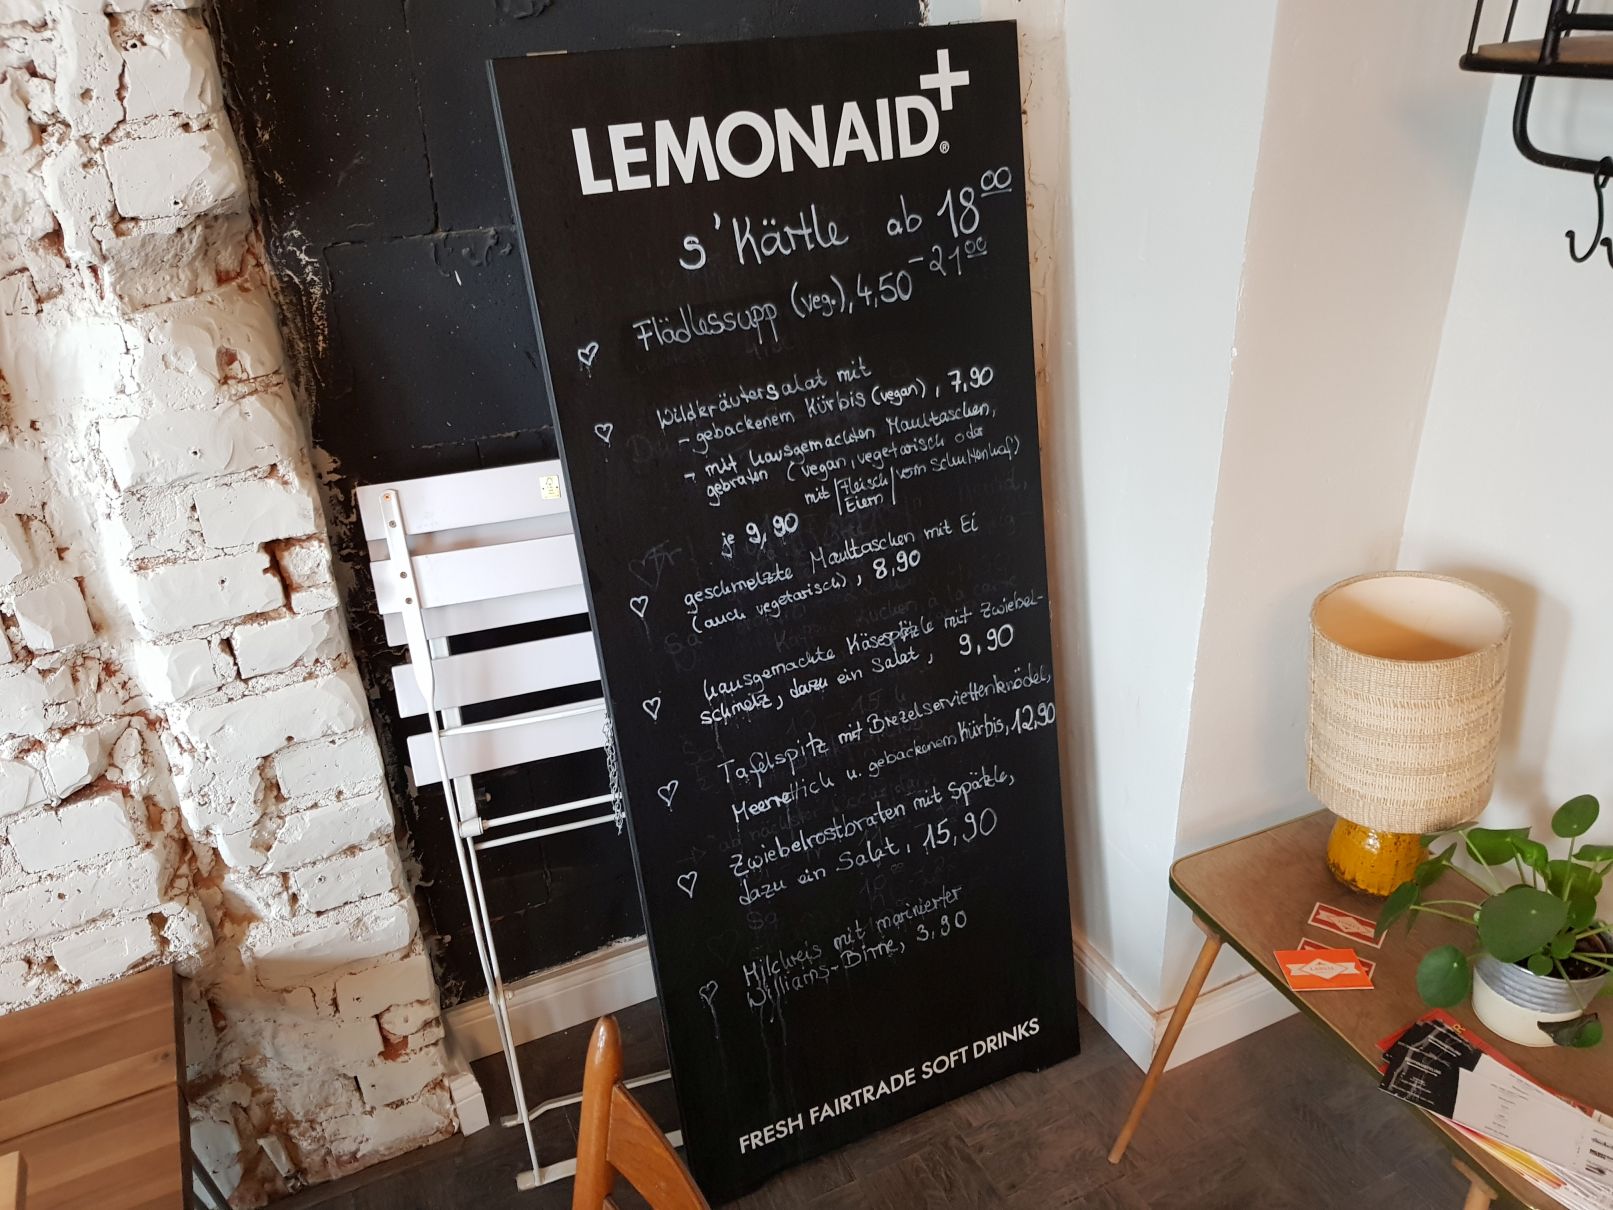 LEMONAID+®
s'Kärtle ab 18⁰⁰
-21⁰⁰
Flädlessupp (veg.), 4,50
Wildkräutersalat mit
- gebackenem Kürbis (vegan), 7,90
- mit hausgemachten Maultaschen,
gebraten (vegan, vegetarisch oder
mit |Fleisch| vom Schuttenhof)
Eiern
je 9,90
geschmelzte Maultaschen mit Ei
(auch vegetarisch), 8,90
hausgemachte Käsespätzle mit Zwiebel-
schmelz, dazu ein Salat, 9,90
Tafelspitz mit Brezelserviettenknödel,
Meerrettich u. gebackenem Kürbis, 12,90
Zwiebelrostbraten mit Spätzle,
dazu ein Salat, 15,90
Milchreis mit marinierter
Williams-Birne, 3,90
FRESH FAIRTRADE SOFT DRINKS